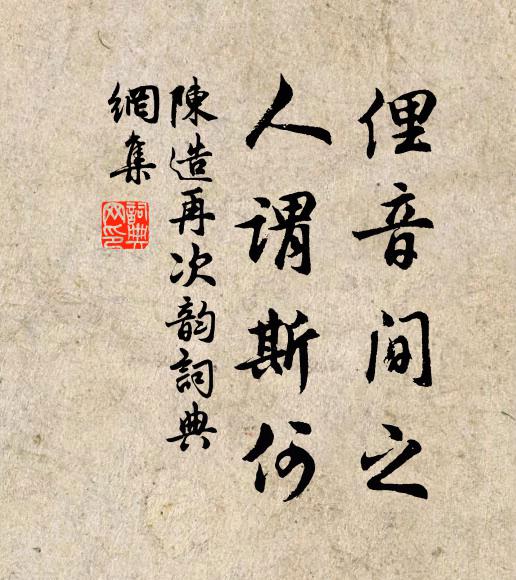 俚音間之
人謂斯何
陳造再次韵詞典
網集
詞典網印